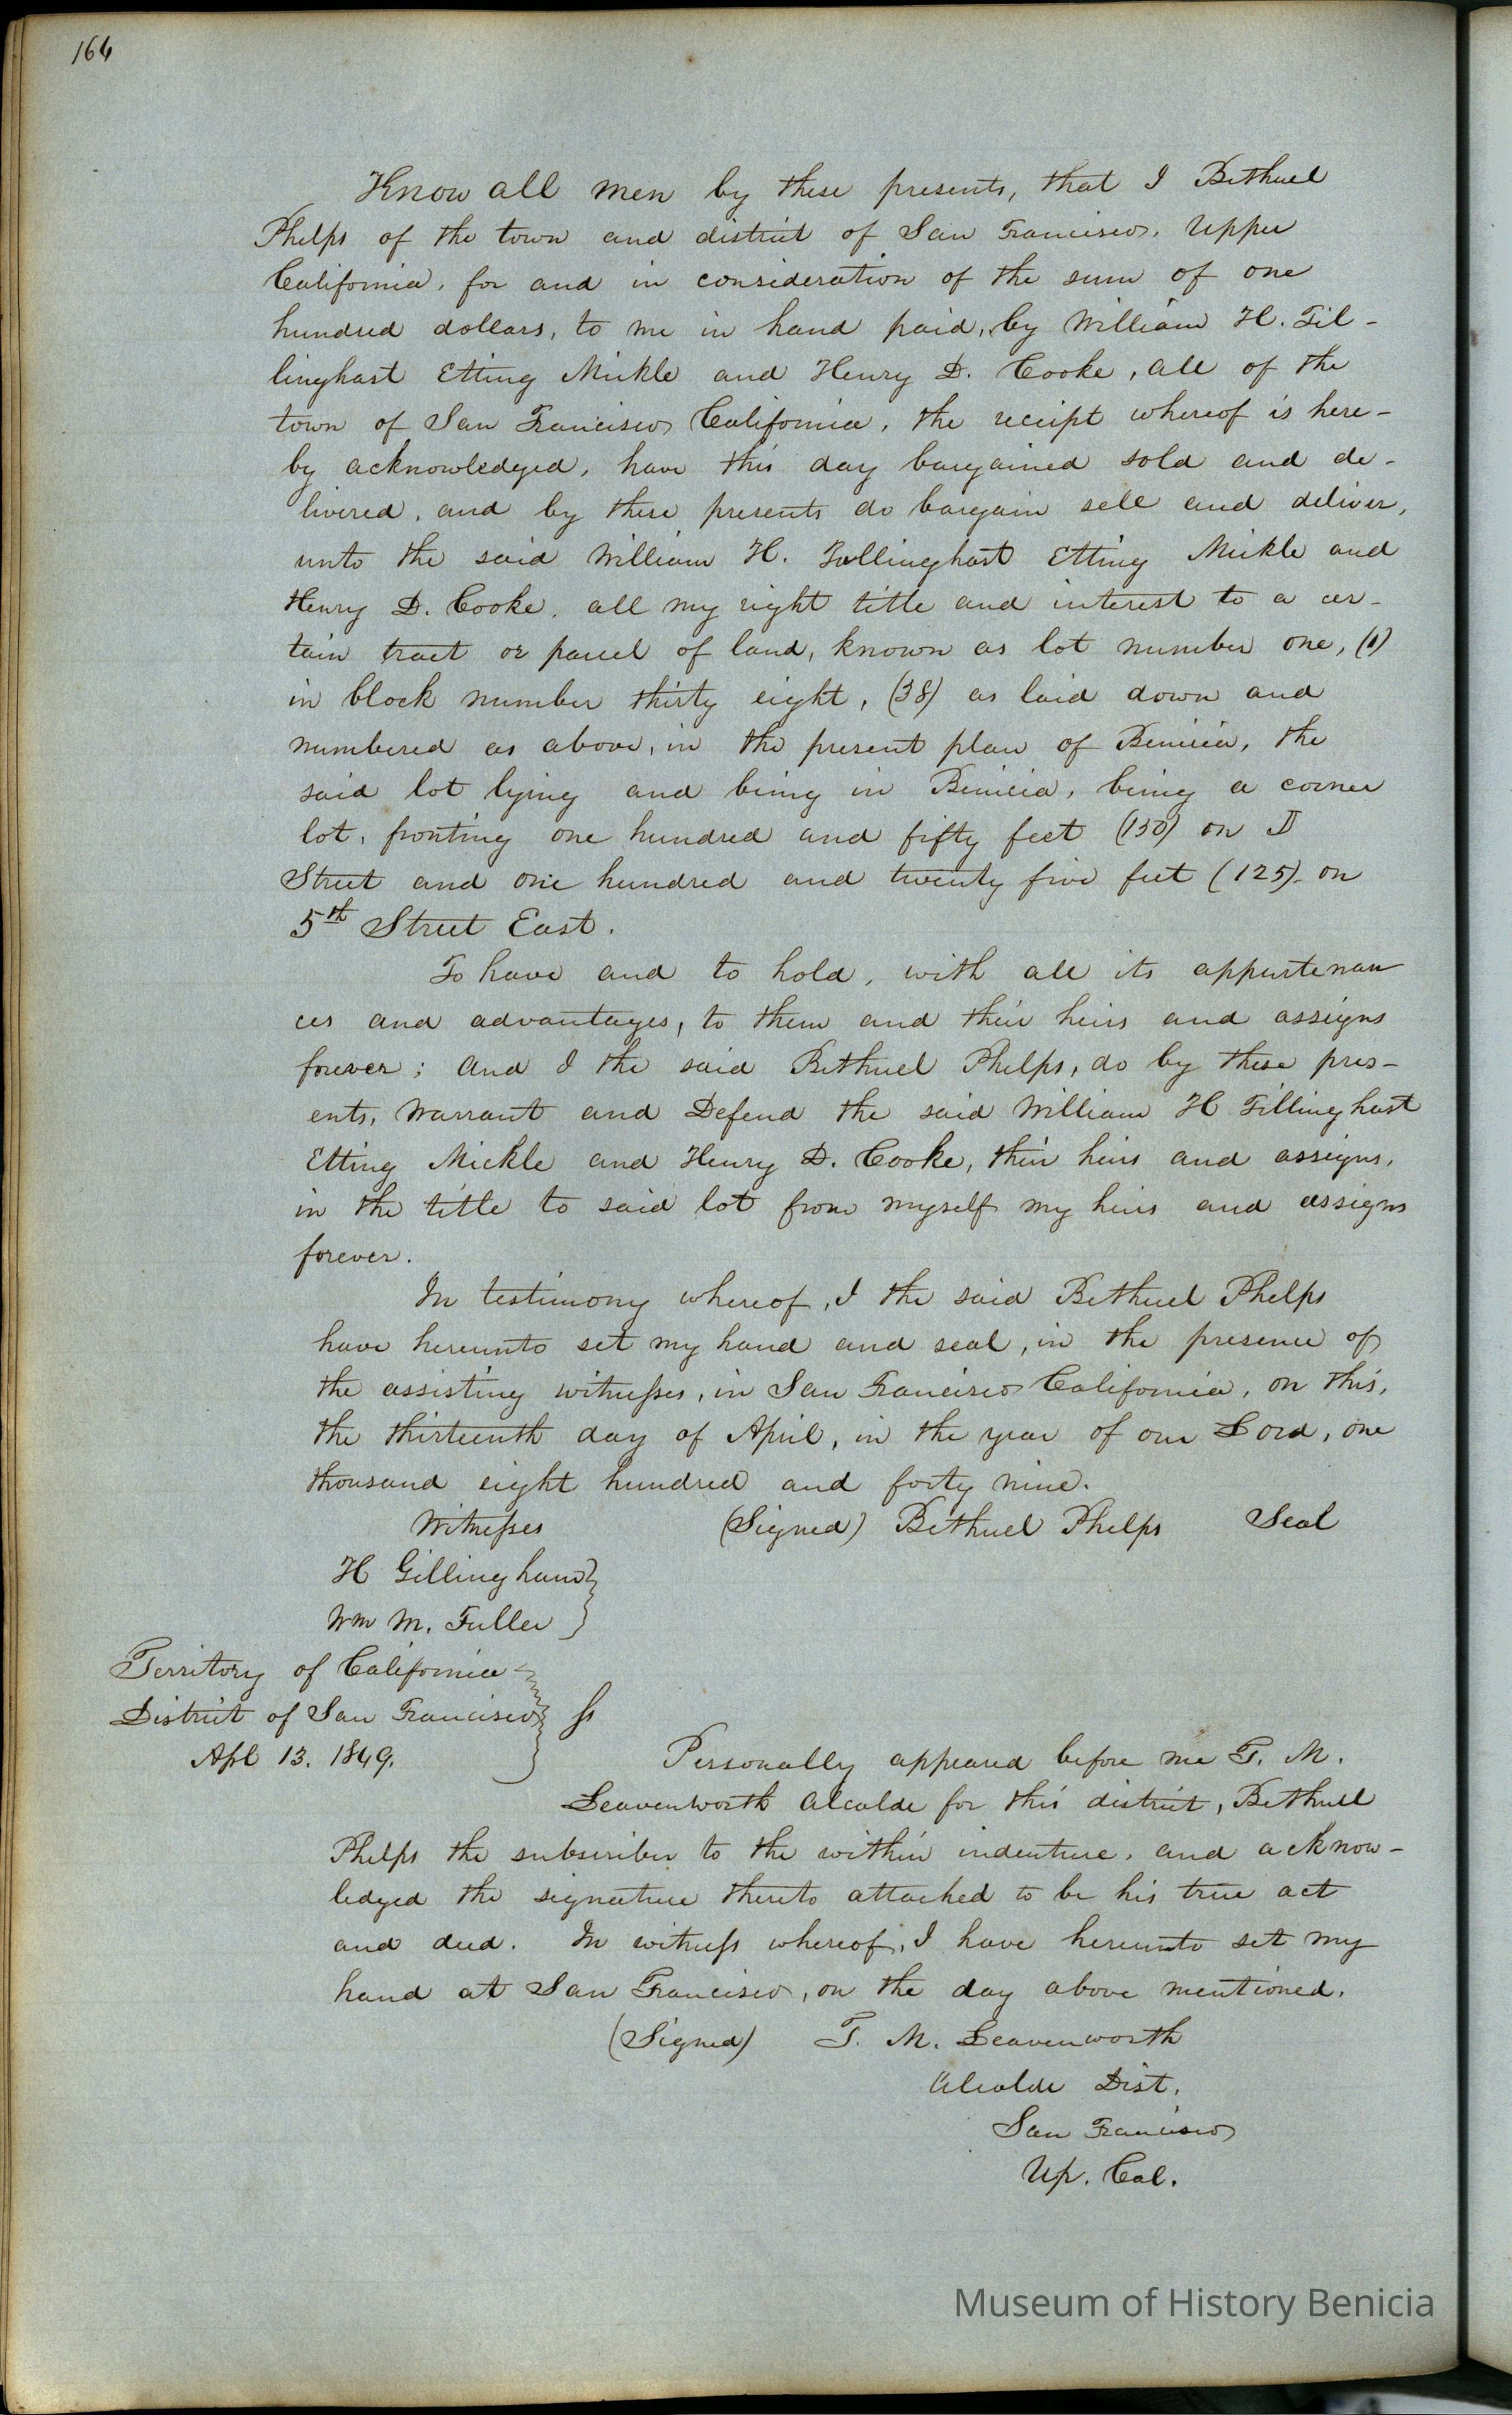 164
Know all men by these presents, that I Bethuel
Phelps of the town and district of San Francisco, Upper
California, for and in consideration of the sum of one
hundred dollars, to me in hand paid, by William H. Til-
linghast Etting Mickle and Henry D. Cooke, all of the
town of San Francisco California, the receipt whereof is here-
by acknowledged, have this day bargained sold and de-
livered, and by these presents do bargain sell and deliver,
unto the said William H. Tillinghast Etting Mickle and
Henry D. Cooke, all my right title and interest to a cer-
tain tract or parcel of land, known as lot number one, (1)
in block number thirty eight, (38) as laid down and
numbered as above, in the present plan of Benicia, the
said lot lying and being in Benicia, being a corner
lot, fronting one hundred and fifty feet (150) on D
Street and one hundred and twenty five feet (125) on
5th Street East.
To have and to hold, with all its appurtenan
ces and advantages, to them and their heirs and assigns
forever; and I the said Bethuel Phelps, do by these pres-
ents, Warrant and Defend the said William H Tillinghast
Etting Mickle and Henry D. Cooke, their heirs and assigns,
in the title to said lot from myself my heirs and assigns
forever.
In testimony whereof, I the said Bethuel Phelps
have hereunto set my hand and seal, in the presence of
the assisting witnesses, in San Francisco California, on this,
the thirteenth day of April, in the year of our Lord, one
thousand eight hundred and forty nine.
Witnesses (Signed) Bethuel Phelps Seal
H Gillingham
Wm M. Fuller
Territory of California
District of San Francisco ss
Apl 13. 1849.
Personally appeared before me T. M.
Leavenworth Alcalde for this district, Bethuel
Phelps the subscriber to the within indenture, and acknow-
ledged the signature thereto attached to be his true act
and deed. In witness whereof, I have hereunto set my
hand at San Francisco, on the day above mentioned.
(Signed) T. M. Leavenworth
Alcalde Dist.
San Francisco
Up. Cal.
Museum of History Benicia